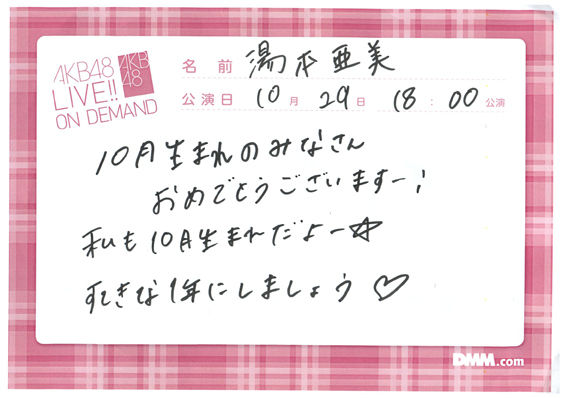 AKB48
LIVE!!
ON DEMAND
AKB
48
名前 湯本亜美
公演日 10月 29日 18:00公演
10月生まれのみなさん
おめでとうございますー!
私も10月生まれだよー☆
すてきな1年にしましょう♡
DMM.com